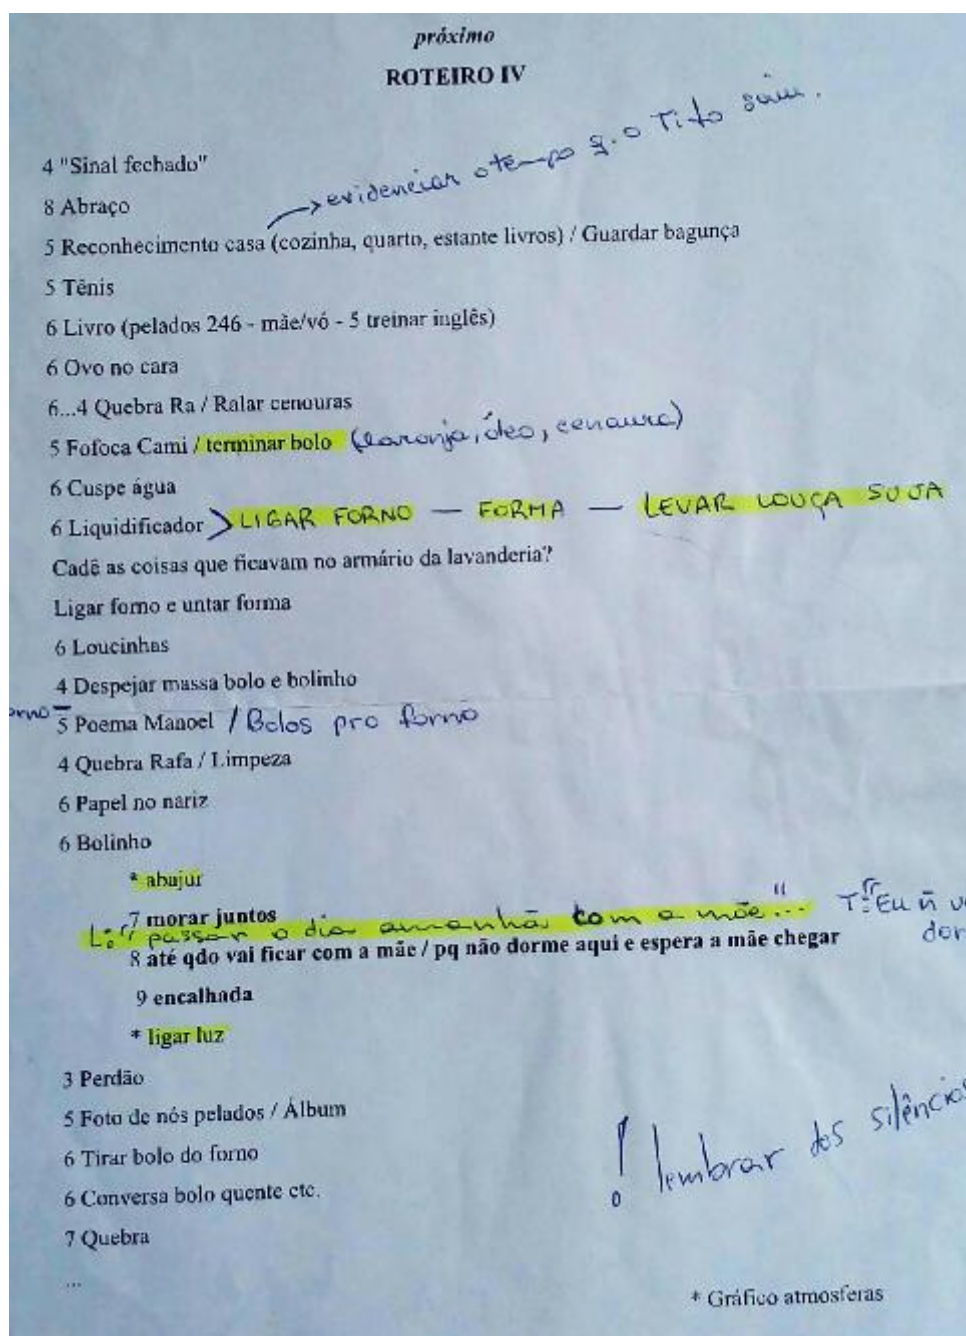 próximo
ROTEIRO IV
4 "Sinal fechado"
→ evidenciar o tempo q. o Tito
8 Abraço
5 Reconhecimento casa (cozinha, quarto, estante livros) / Guardar bagunça
5 Tênis
6 Livro (pelados 246 - mãe/vó - 5 treinar inglês)
6 Ovo no cara
6...4 Quebra Ra / Ralar cenouras
5 Fofoca Cami / terminar bolo (laranja, óleo, cenoura)
6 Cuspe água
6 Liquidificador > LIGAR FORNO — FORMA — LEVAR LOUÇA SUJA
Cadê as coisas que ficavam no armário da lavanderia?
Ligar forno e untar forma
6 Loucinhas
4 Despejar massa bolo e bolinho
5 Poema Manoel / Bolos pro forno
4 Quebra Rafa / Limpeza
6 Papel no nariz
6 Bolinho
* abajur
7 morar juntos
L: "passar o dia amanhã com a mãe..." T: "Eu ñ
8 até qdo vai ficar com a mãe / pq não dorme aqui e espera a mãe chegar
9 encalhada
* ligar luz
3 Perdão
5 Foto de nós pelados / Álbum
6 Tirar bolo do forno
! lembrar dos silêncios
6 Conversa bolo quente etc.
7 Quebra
...
* Gráfico atmosferas